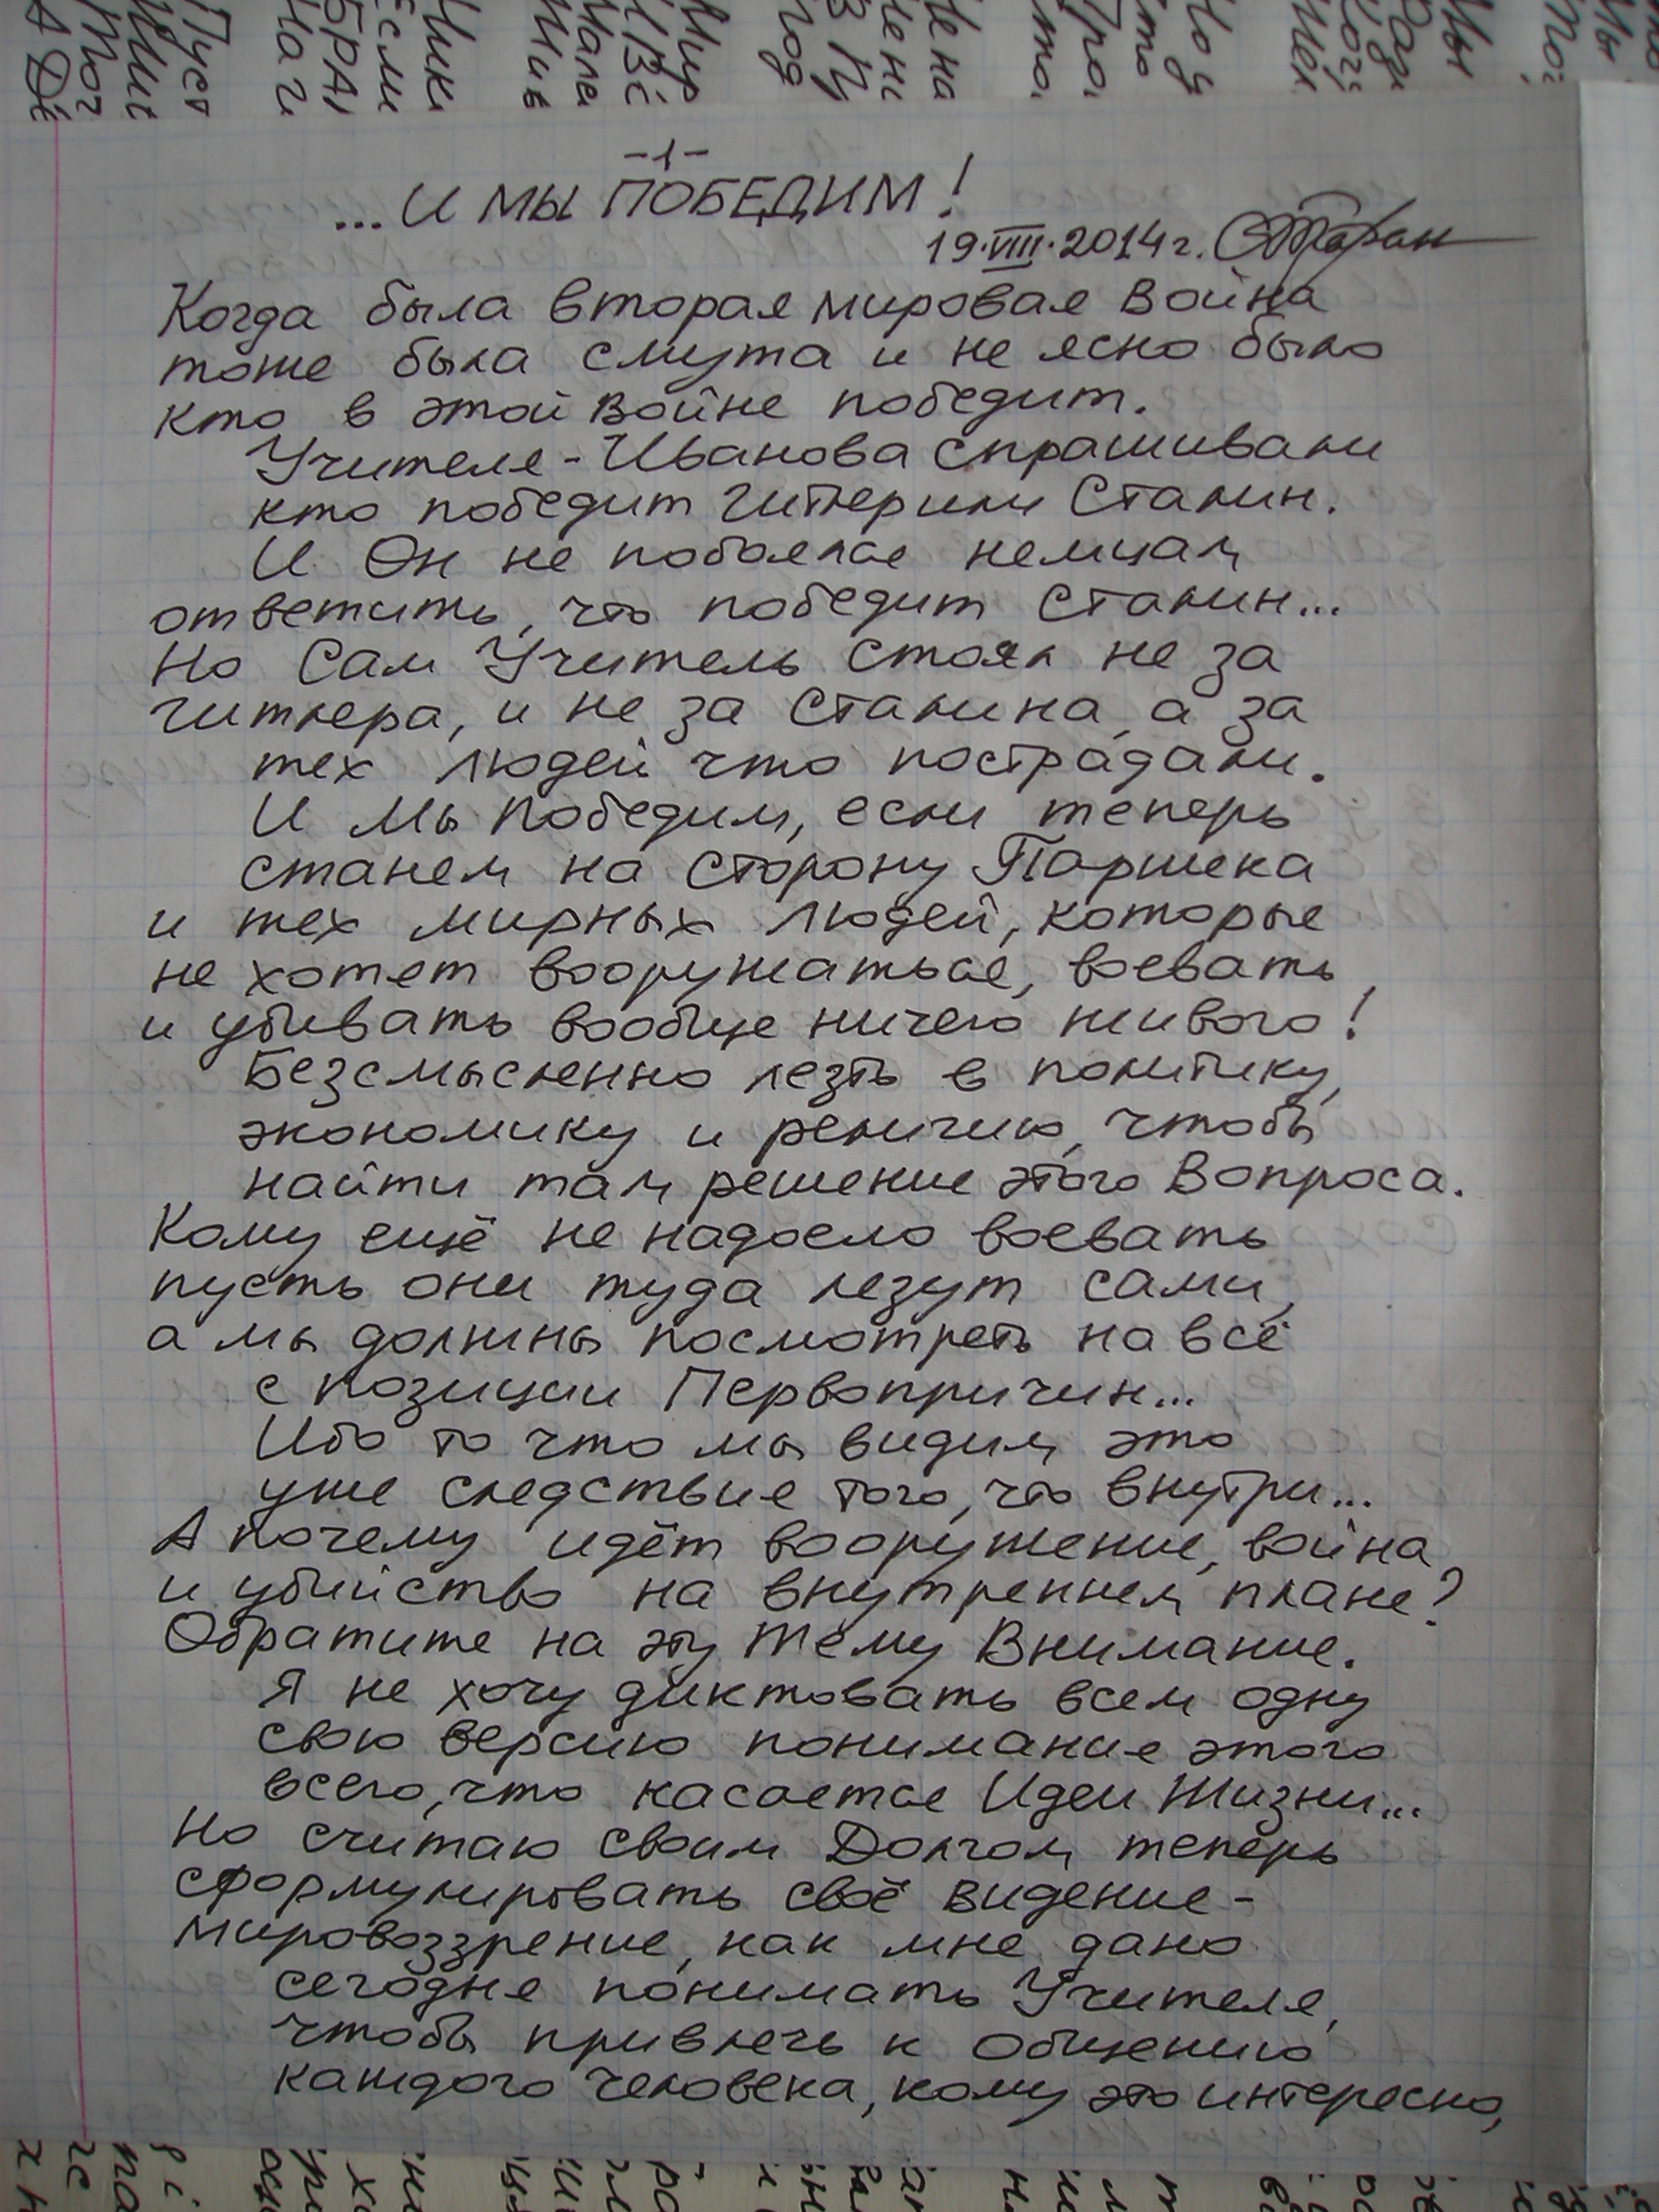 -1-
...И МЫ ПОБЕДИМ!
19.VIII.2014г.
Когда была вторая мировая Война
тоже была смута и не ясно было
кто в этой Войне победит.
Учителя-Иванова спрашивали
кто победит гитлер или Сталин.
И Он не побоялся немцам
ответить, что победит Сталин...
Но Сам Учитель стоял не за
гитлера, и не за Сталина, а за
тех людей что пострадали.
И Мы Победим, если теперь
станем на сторону Паршека
и тех мирных людей, которые
не хотят вооружаться, воевать
и убивать вообще ничего живого!
Безсмысленно лезть в политику,
экономику и религию, чтобы
найти там решение этого Вопроса.
Кому ещё не надоело воевать
пусть они туда лезут сами,
а мы должны посмотреть на всё
с позиции Первопричин...
Ибо то что мы видим это
уже следствие того, что внутри...
А почему идёт вооружение, война
и убийство на внутреннем плане?
Обратите на эту Тему Внимание.
Я не хочу диктовать всем одну
свою версию понимания этого
всего, что касается Идеи Жизни...
Но считаю своим Долгом теперь
сформулировать своё видение-
мировоззрение, как мне дано
сегодня понимать Учителя,
чтобы привлечь к Общению
каждого человека, кому это интересно,